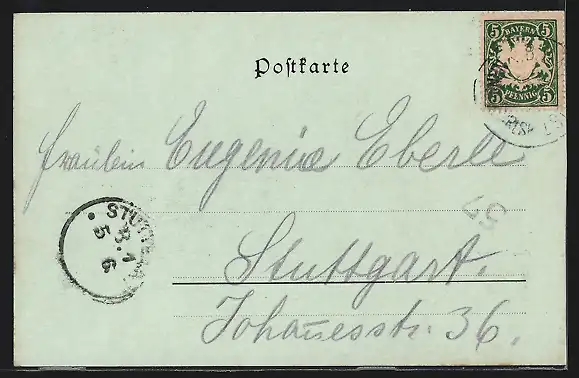 5 BAYERN 5
5 PFENNIG 5
Postkarte
Fräulein Eugenie Eberle
57
STUTTGA
Stuttgart.
Johannesstr. 36.